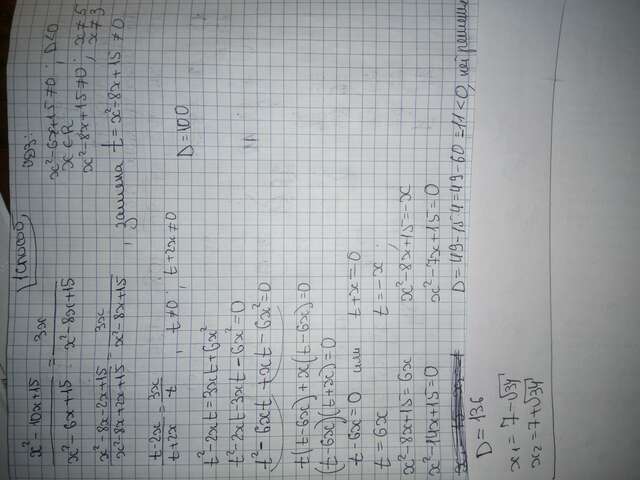 1 способ
x²-10x+15 / x²-6x+15 = 3x / x²-8x+15
ОДЗ:
x²-6x+15≠0; D<0
x∈R
x²-8x+15≠0; x≠5
x≠3
x²-8x-2x+15 / x²-8x+2x+15 = 3x / x²-8x+15, замена t=x²-8x+15≠0
t-2x / t+2x = 3x / t, t≠0; t+2x≠0
D=100
t²-2xt=3xt+6x²
t²-2xt-3xt-6x²=0
t²-6xt+xt-6x²=0
t(t-6x)+x(t-6x)=0
(t-6x)(t+x)=0
t-6x=0 или t+x=0
t=6x t=-x
x²-8x+15=6x x²-8x+15=-x
x²-14x+15=0 x²-7x+15=0
D=49-15·4=49-60=11<0, нет решения
D=136
x₁=7-√34
x₂=7+√34